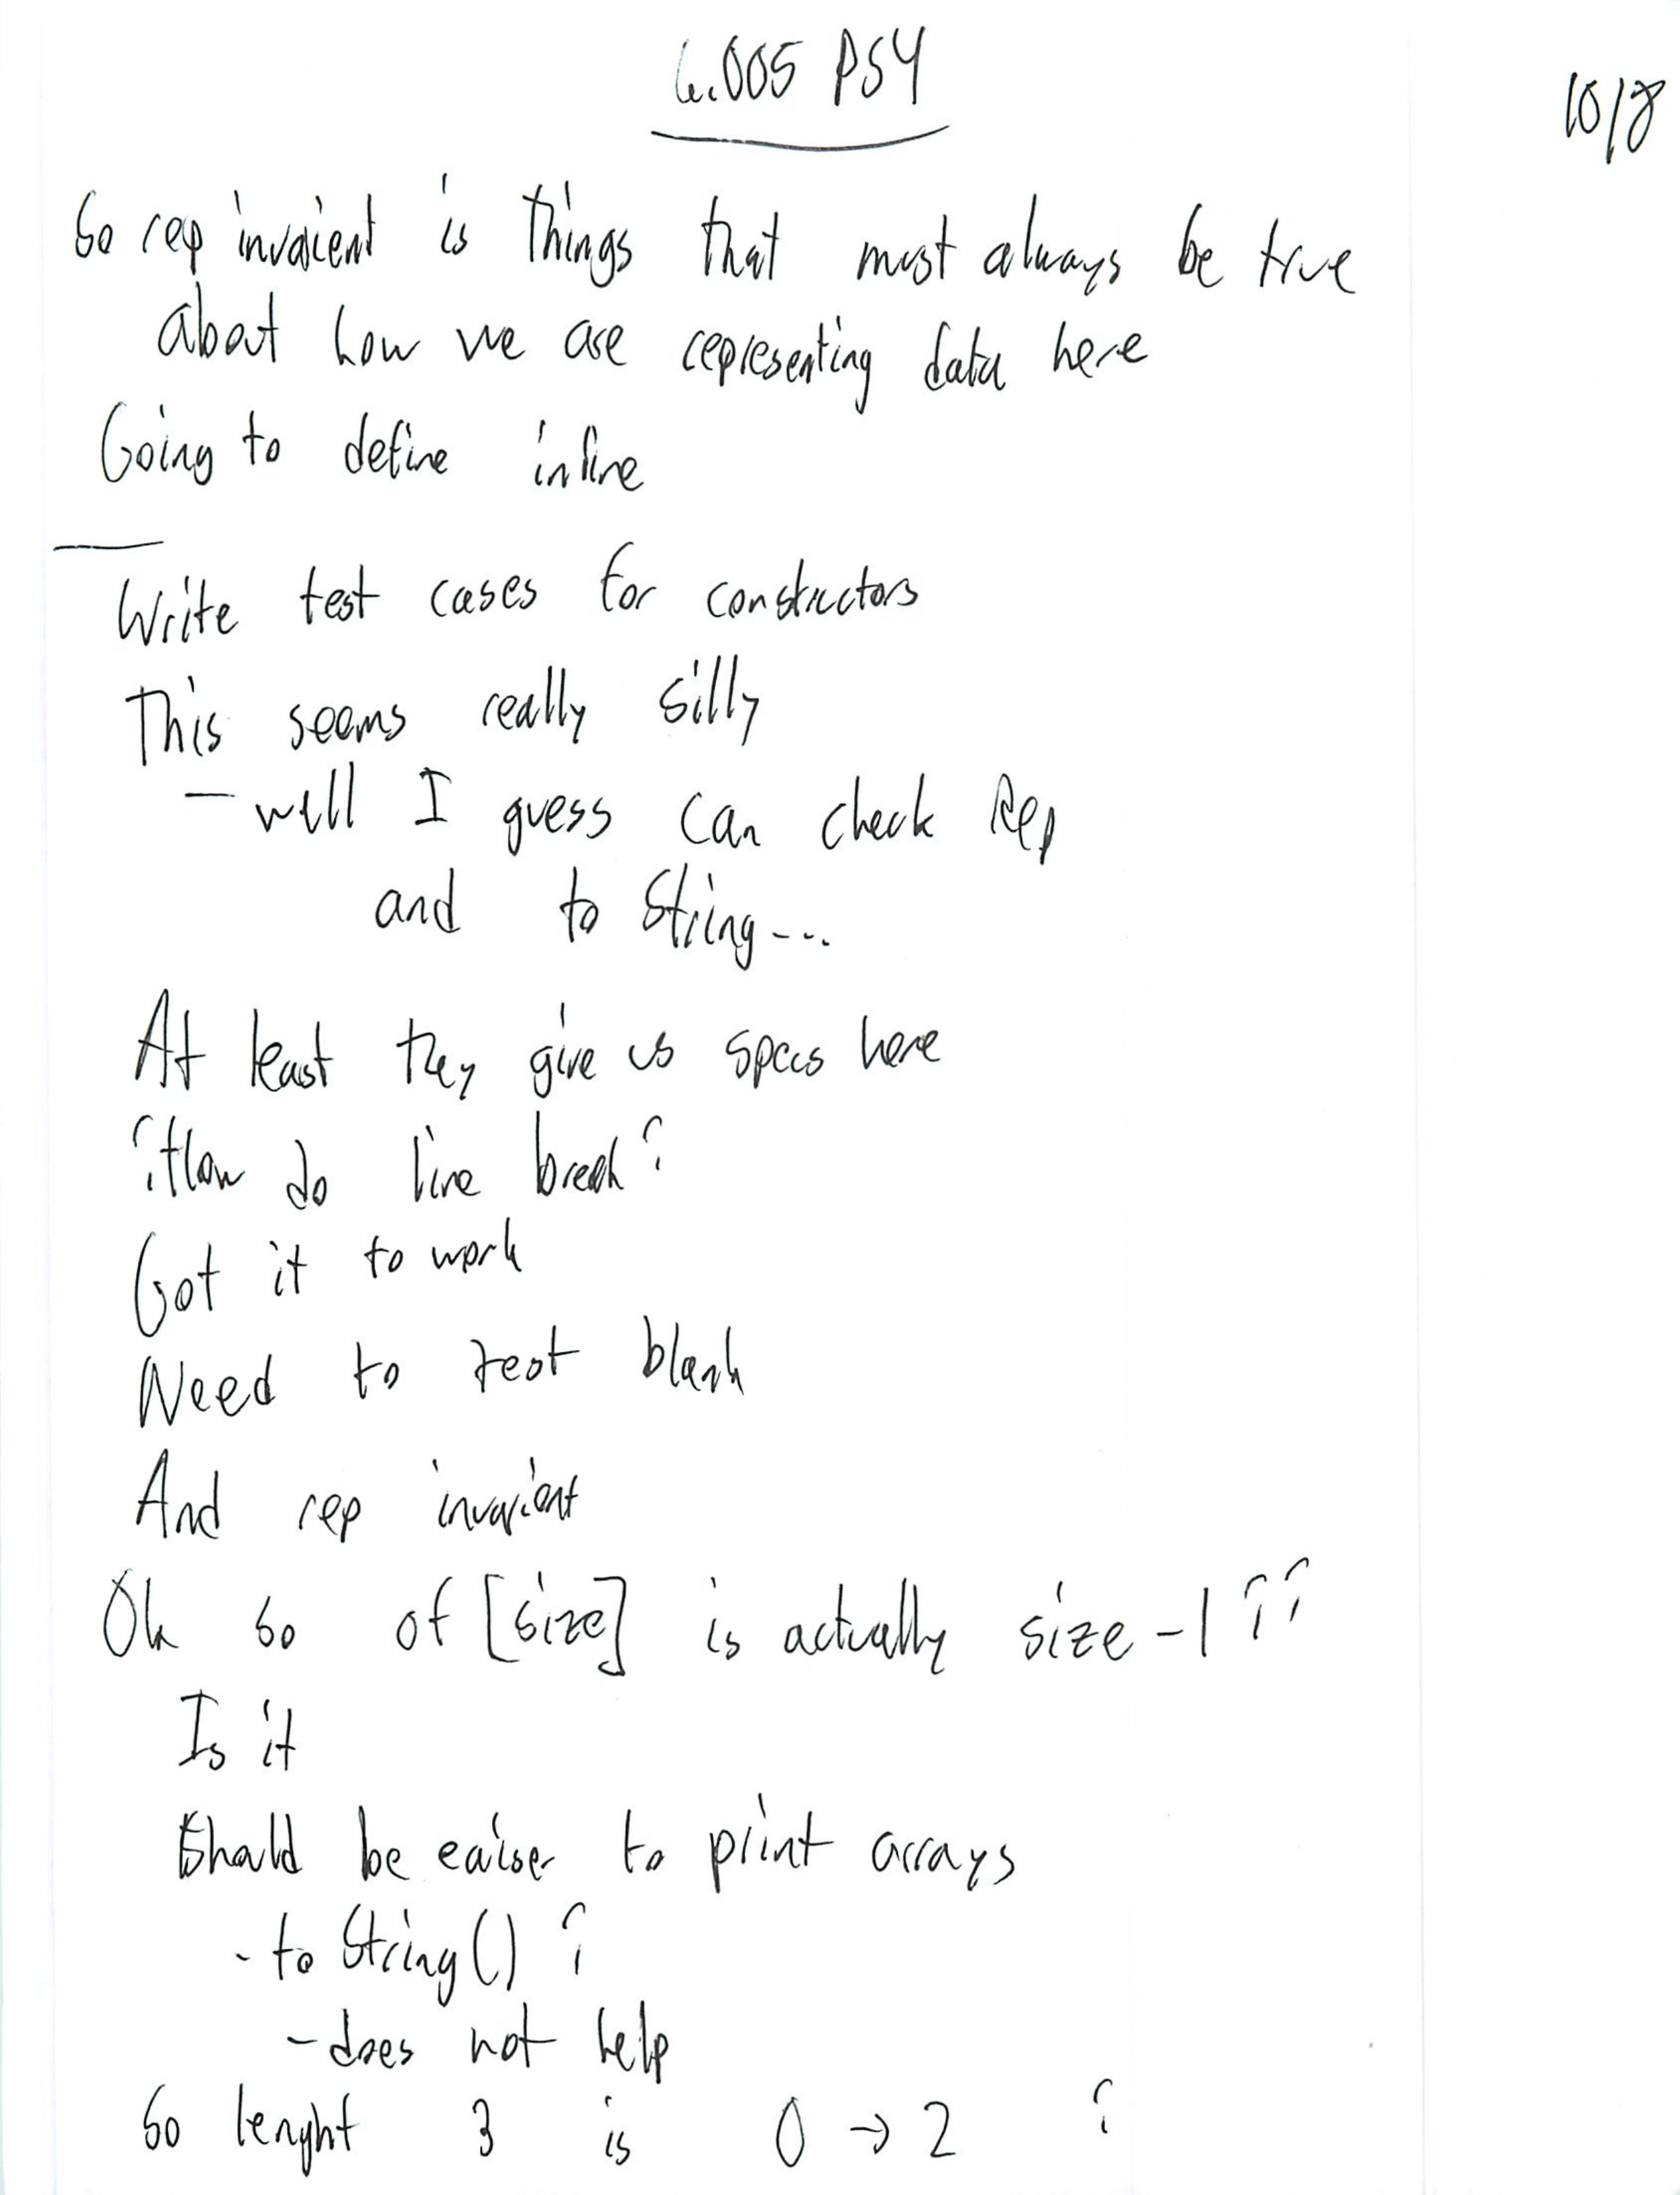 6.005 PS4
10/8
So rep invaient is things that must always be true
about how we are representing data here
Going to define inline
Write test cases for constructors
This seems really silly
- well I guess can check Rep
and to String...
At least they give us specs here
? How do line break?
Got it to work
Need to test blank
And rep invarient
Oh so of [size] is actually size -1 ??
Is it
Should be eaiser to print arrays
- to String() ?
- does not help
So lenght 3 is 0 → 2 ?